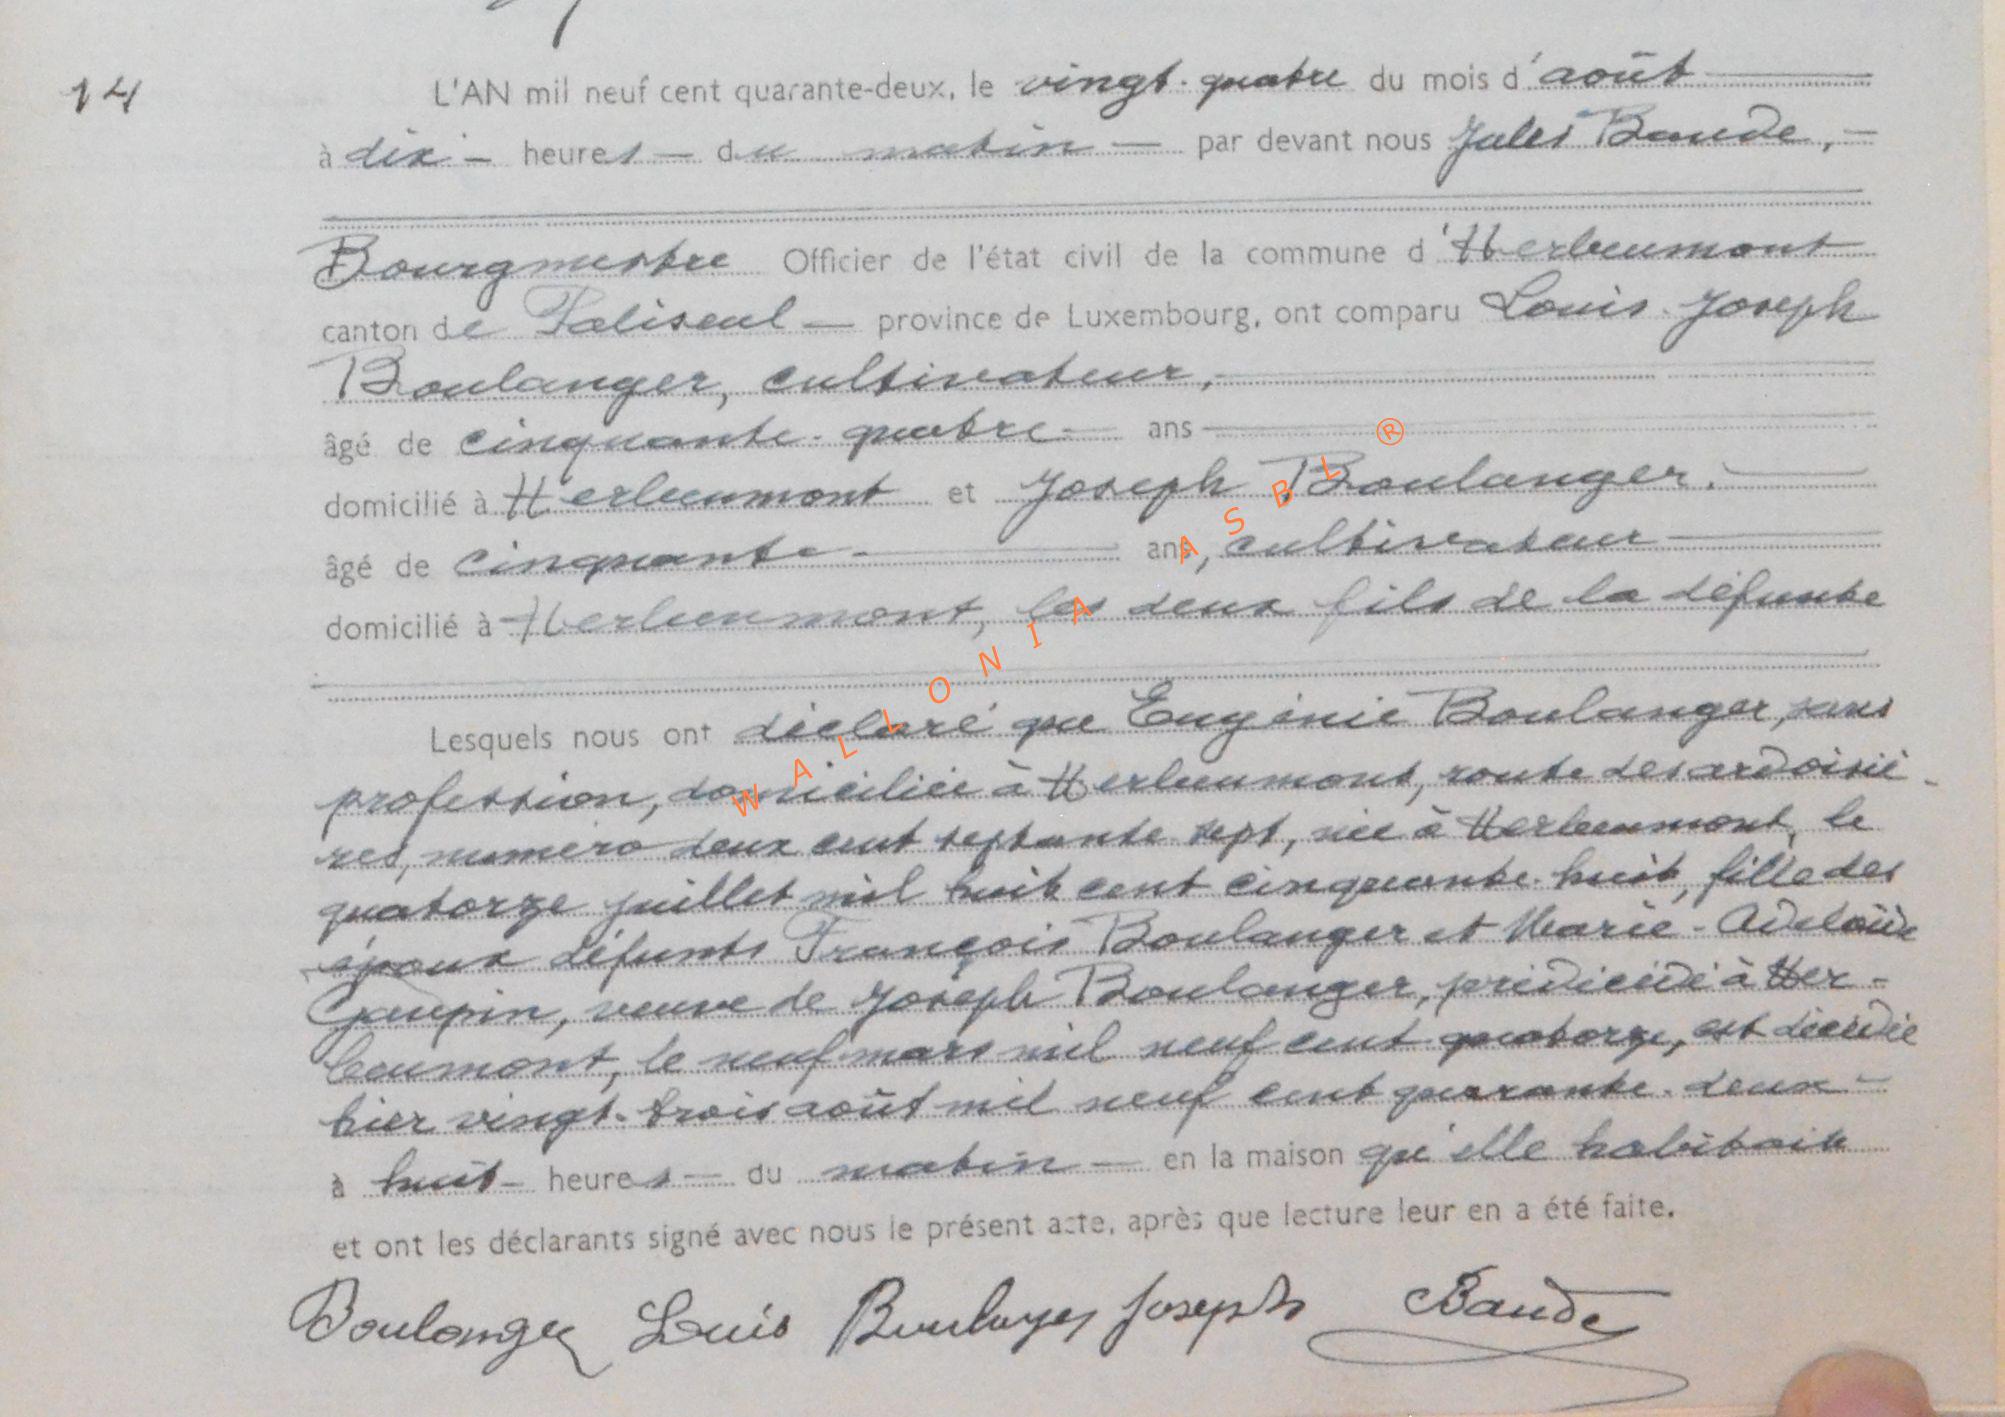 14
L'AN mil neuf cent quarante-deux, le vingt-quatre du mois d'août
à dix heures du matin par devant nous Jules Baude,
Bourgmestre Officier de l'état civil de la commune d'Herbeumont
canton de Paliseul province de Luxembourg, ont comparu Louis-Joseph
Boulanger, cultivateur,
âgé de cinquante-quatre ans
domicilié à Herbeumont et Joseph Boulanger,
âgé de cinquante ans, cultivateur
domicilié à Herbeumont, les deux fils de la défunte
Lesquels nous ont déclaré que Eugénie Boulanger, sans
profession, domiciliée à Herbeumont, route des ardoisiè-
res, numéro deux cent septante sept, née à Herbeumont, le
quatorze juillet mil huit cent cinquante-huit, fille des
époux défunts François Boulanger et Marie-Adelaïde
Gaupin, veuve de Joseph Boulanger, prédécédé à Her-
beumont, le neuf mars mil neuf cent quatorze, est décédée
hier vingt-trois août mil neuf cent quarante-deux
à huit heures du matin en la maison qu'elle habitait
et ont les déclarants signé avec nous le présent acte, après que lecture leur en a été faite.
Boulanger Louis Boulanger Joseph Baude
WALLONIA ASBL ®